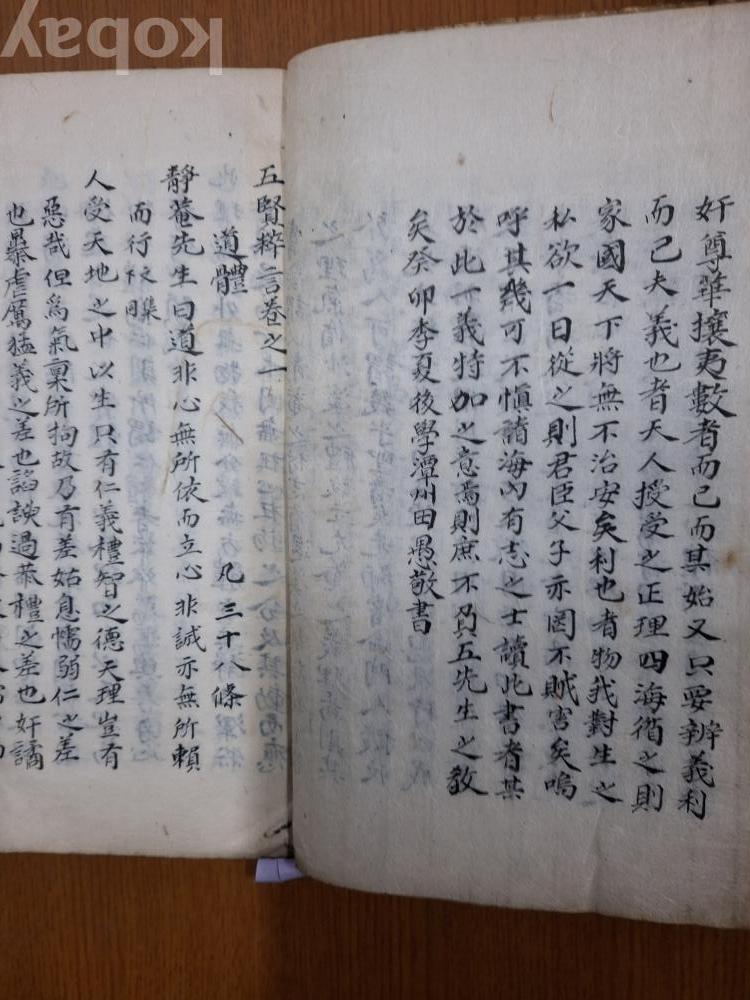 kobay
奸尊華攘夷數者而已而其始又只要辨義利
而已夫義也者天人授受之正理四海循之則
家國天下將無不治安矣利也者物我對生之
私欲一日從之則君臣父子亦罔不賊害矣嗚
呼其幾可不愼諸海內有志之士讀此書者其
於此一義特加之意焉則庶不負五先生之敎
矣癸卯季夏後學潭州田愚敬書
五賢粹言卷之一
道體 凡三十八條
靜菴先生曰道非心無所依而立心非誠亦無所賴
而行
人受天地之中以生只有仁義禮智之德天理豈有
惡哉但爲氣稟所拘故乃有差姑息懦弱仁之差
也暴虐厲猛義之差也諂諛過恭禮之差也奸譎